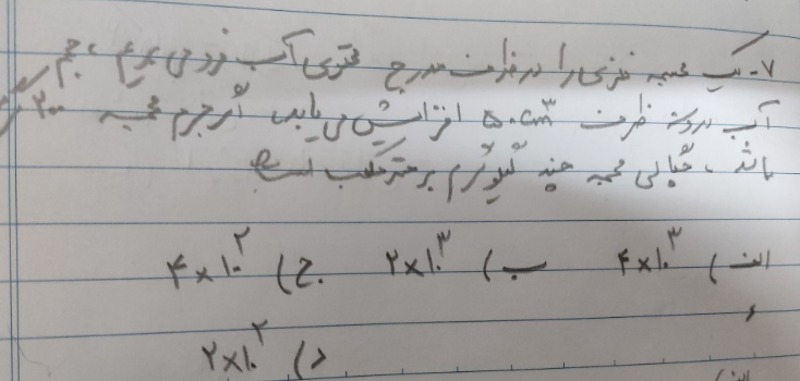 ۷- یک مجسمه فلزی را در ظرف مدرج محتوی آب فرو می بریم، حجم
آب درون ظرف ۵۰cm³ افزایش می یابد، اگر جرم مجسمه ۲۰۰
باشد، چگالی مجسمه چند کیلوگرم بر مترمکعب است
الف) ۴×۱۰³ ب) ۲×۱۰³ ج) ۴×۱۰²
د) ۲×۱۰²